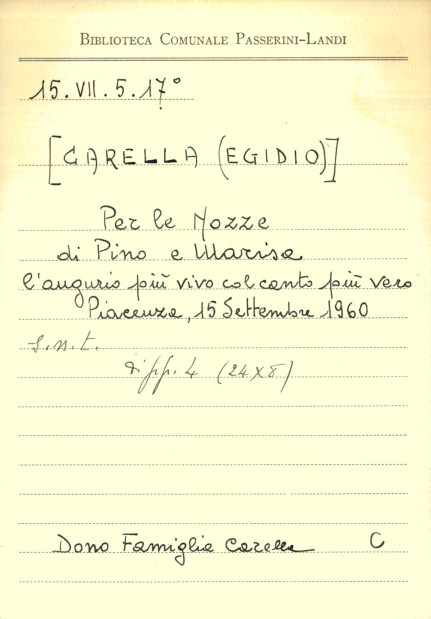 BIBLIOTECA COMUNALE PASSERINI-LANDI
15.VII.5.17°
[CARELLA (EGIDIO)]
Per le Nozze
di Pino e Marisa
l'augurio più vivo col canto più vero
Piacenza, 15 Settembre 1960
s.n.t.
di pp. 4 (24x8)
Dono Famiglia Carella C